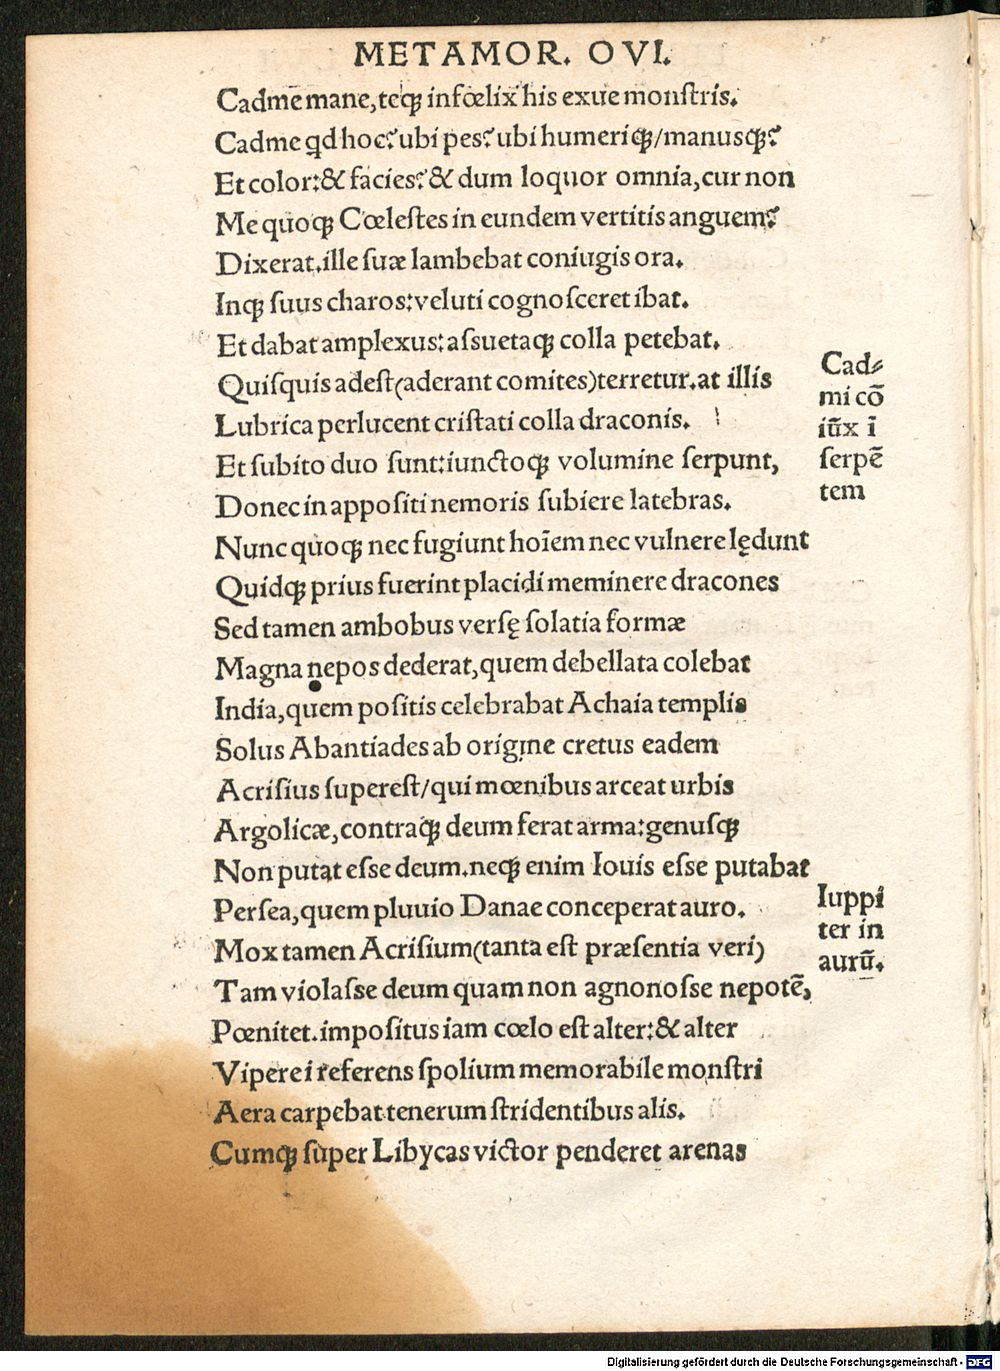 METAMOR. OVI.
Cadmē mane,teqꝫ infœlix his exue monſtris.
Cadme qd hoc? ubi pes? ubi humeriqꝫ/manusqꝫ?
Et color:& facies? & dum loquor omnia,cur non
Me quoqꝫ Cœleſtes in eundem vertitis anguem?
Dixerat.ille ſuæ lambebat coniugis ora.
Inqꝫ ſuus charos:veluti cognoſceret ibat.
Et dabat amplexus:aſsuetaqꝫ colla petebat.
Quiſquis adeſt(aderant comites)terretur.at illis
Lubrica perlucent criſtati colla draconis.
Et ſubito duo ſunt:iunctoqꝫ volumine ſerpunt,
Donec in appoſiti nemoris ſubiere latebras.
Cad⸗
mi cō
iūx ī
ſerpē
tem
Nunc quoqꝫ nec fugiunt hoīem nec vulnere lędunt
Quidqꝫ prius fuerint placidi meminere dracones
Sed tamen ambobus verſę ſolatia formæ
Magna nepos dederat,quem debellata colebat
India,quem poſitis celebrabat Achaia templis
Solus Abantiades ab origine cretus eadem
Acriſius ſupereſt/qui mœnibus arceat urbis
Argolicæ,contraqꝫ deum ferat arma:genuſqꝫ
Non putat eſse deum.neqꝫ enim Iouis eſse putabat
Perſea,quem pluuio Danae conceperat auro.
Mox tamen Acriſium(tanta eſt præſentia veri)
Iuppi
ter in
aurū.
Tam violaſse deum quam non agnonoſse nepotē,
Pœnitet.impoſitus iam cœlo eſt alter:& alter
Viperei referens ſpolium memorabile monſtri
Aera carpebat tenerum ſtridentibus alis.
Cumqꝫ ſuper Libycas victor penderet arenas
Digitalisierung gefördert durch die Deutsche Forschungsgemeinschaft - DFG